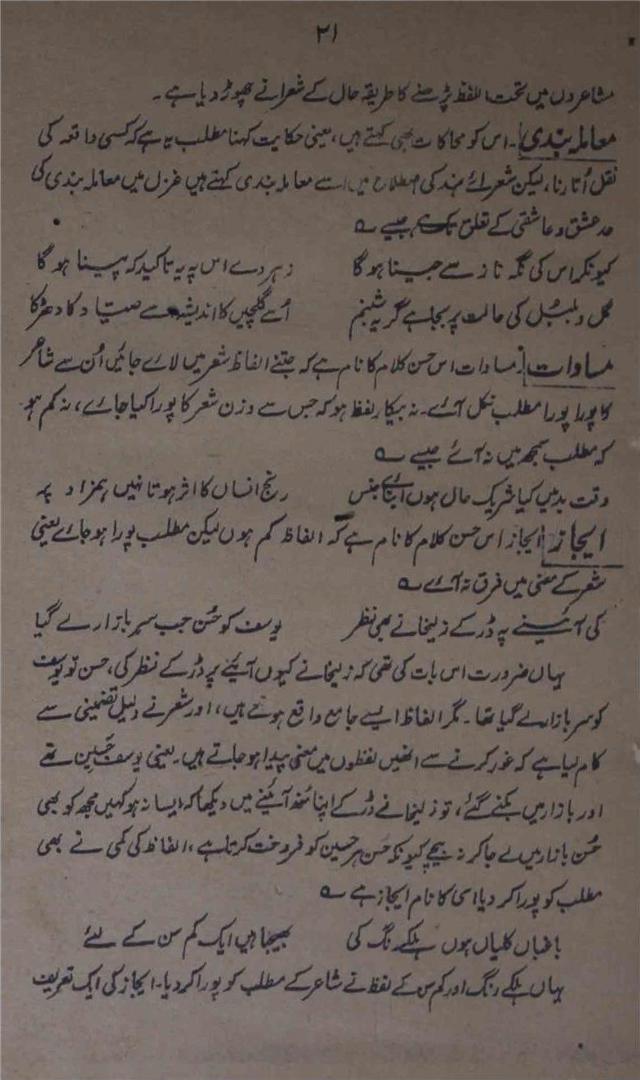 ۲۱
مشاعروں میں تحت اللفظ پڑھنے کا طریقہ حال کے شعرا نے چھوڑ دیا ہے۔
معاملہ بندی۔ اس کو محاکات بھی کہتے ہیں، یعنی حکایت کہنا مطلب یہ ہے کہ کسی واقعہ کی
نقل اُتارنا، لیکن شعرائے ہند کی اصطلاح میں اسے معاملہ بندی کہتے ہیں غزل میں معاملہ بندی کی
حد عشق و عاشقی کے تعلق تک ہے جیسے ؎
کیونکر اس کی نگہ ناز سے جینا ہوگا زہر دے اس پہ یہ تاکید کہ پینا ہوگا
گل و بلبل کی حالت پر بجا ہے گریہ شبنم اُسے گلچیں کا اندیشہ اسے صیاد کا دھڑکا
مساوات۔ مساوات اس حسن کلام کا نام ہے کہ جتنے الفاظ شعر میں لائے جائیں اُن سے شاعر
کا پورا پورا مطلب نکل آئے۔ نہ بیکار لفظ ہو کہ جس سے وزن شعر کا پورا کیا جائے، نہ کم ہو
کہ مطلب سمجھ میں نہ آئے جیسے ؎
وقت بد میں کیا شریک حال ہوں ابنائے جنس رنج انساں کا اثر ہوتا نہیں ہمزاد پہ
ایجاز۔ ایجاز اس حسن کلام کا نام ہے کہ الفاظ کم ہوں لیکن مطلب پورا ہو جائے یعنی
شعر کے معنی میں فرق نہ آئے ؎
کی آئینے پہ ڈر کے زلیخا نے بھی نظر یوسف کو حُسن جب سر بازار لے گیا
یہاں ضرورت اس بات کی تھی کہ زلیخا نے کیوں آئینے پر ڈر کے نظر کی، حسن تو یوسف
کو سر بازار لے گیا تھا۔ مگر الفاظ ایسے جامع واقع ہوئے ہیں، اور شعر نے دلیل تضمینی سے
کام لیا ہے کہ غور کرنے سے انھیں لفظوں میں معنی پیدا ہو جاتے ہیں۔ یعنی یوسف حَسین تھے
اور بازار میں بکنے گئے، تو زلیخا نے ڈر کے اپنا منھ آئینے میں دیکھا کہ ایسا نہ ہو کہیں مجھ کو بھی
حُسن بازار میں لے جا کر نہ بیچے کیونکہ حسن ہر حسین کو فروخت کرتا ہے، الفاظ کی کمی نے بھی
مطلب کو پورا کر دیا اسی کا نام ایجاز ہے ؎
باغباں کلیاں ہوں ہلکے رنگ کی بھیجنا ہیں ایک کم سن کے لئے
یہاں ہلکے رنگ اور کم سن کے لفظ نے شاعر کے مطلب کو پورا کر دیا۔ ایجاز کی ایک تعریف